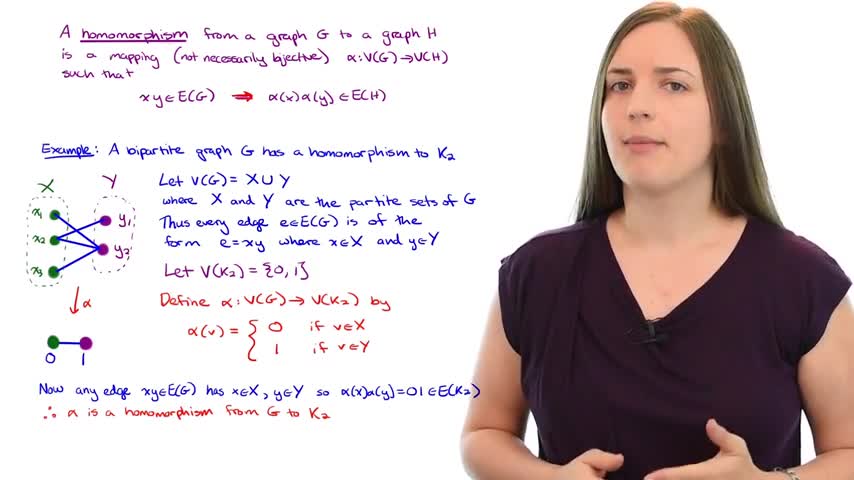 A homomorphism from a graph G to a graph H
is a mapping (not necessarily bijective) α: V(G) → V(H)
such that
xy ∈ E(G) ⇒ α(x)α(y) ∈ E(H)
Example: A bipartite graph G has a homomorphism to K₂
X Y
x₁
x₂
x₃
y₁
y₂
α
0 1
Let V(G) = X ∪ Y
where X and Y are the partite sets of G
Thus every edge e∈E(G) is of the
form e=xy where x∈X and y∈Y
Let V(K₂) = {0,1}
Define α: V(G) → V(K₂) by
α(v) = { 0 if v∈X
1 if v∈Y
Now any edge xy∈E(G) has x∈X, y∈Y so α(x)α(y)=01∈E(K₂)
∴ α is a homomorphism from G to K₂